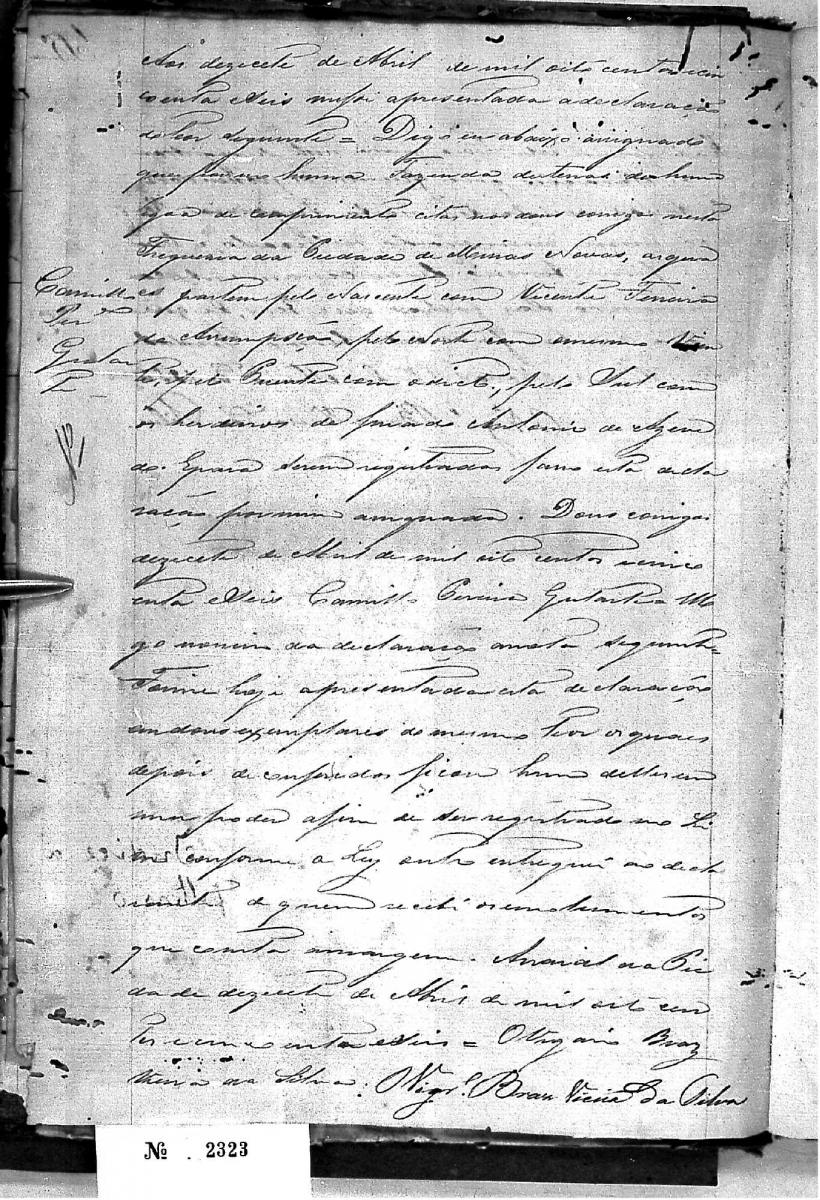 Aos dezecete de Abril de mil oito centos e cin
coenta e Seis me foi apresentada a declaração
do Teor Seguinte = Digo eu abaixo assignado
que possuo huma Fazenda de terras de huma
legoa de comprimento citas nos dous corregos nesta
Freguezia da Piedade de Minas Novas, as quaes
partem pelo Nascente com Vicente Ferreira
da Assumpção, pelo Norte com o mesmo Vicen
te, pelo Puente com o dicto, pelo Sul com
os herdeiros do finado Antonio de Azeve
do. E para serem registradas passo esta decla
ração por mim assignada. Dous corregos
dezecete de Abril de mil oito centos e cinco
enta e Seis Camillo Pereira Gularte
no da declaração a nota Seguinte =
Foi me hoje apresentada esta declaração
em dous exemplares do mesmo Teor os quaes
depois de conferidos ficou hum delles em
meu poder afim de ser registrado no Li
vro conforme a Ley outro entreguei ao decla
rante de quem recebi os emolumentos
que consta a margem. Arraial da Pie
dade dezecete de Abril de mil oito cen
tos e cincoenta e Seis = O Vigario Braz
Vieira da Silva. O Vigr.º Braz Vieira da Silva
Camillo
Per.ª
Gular
te
Nº 2323